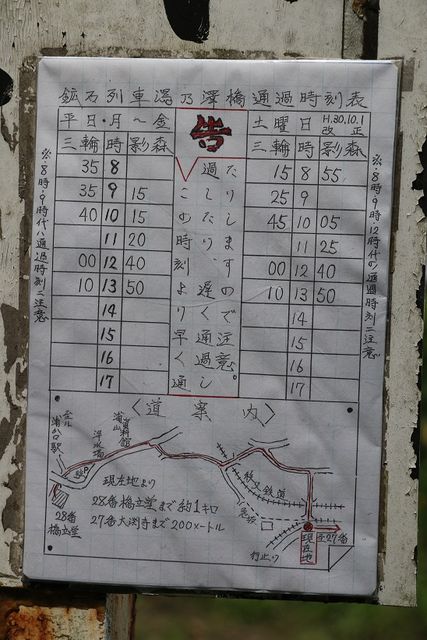 鉱石列車湯乃澤橋通過時刻表
平日・月～金
三輪 時 影森
35 8
35 9 15
40 10 15
11 20
00 12 40
10 13 50
14
15
16
17
※8時・9時代の通過時刻ニ注意
告
この時刻より早く通
過したり、遅く通過し
たりしますので注意。
土曜日 H.30.10.1 改正
三輪 時 影森
15 8 55
25 9
45 10 05
11 25
00 12 40
10 13 50
14
15
16
17
※8時・9時12時代の通過時刻ニ注意
〈道案内〉
浦山口駅
浦山資料館
現在地より
28番橋立堂まで約1キロ
27番大渕寺まで200メートル
28番
橋立堂
秩父鉄道
急坂
行止り
現在地
至27番